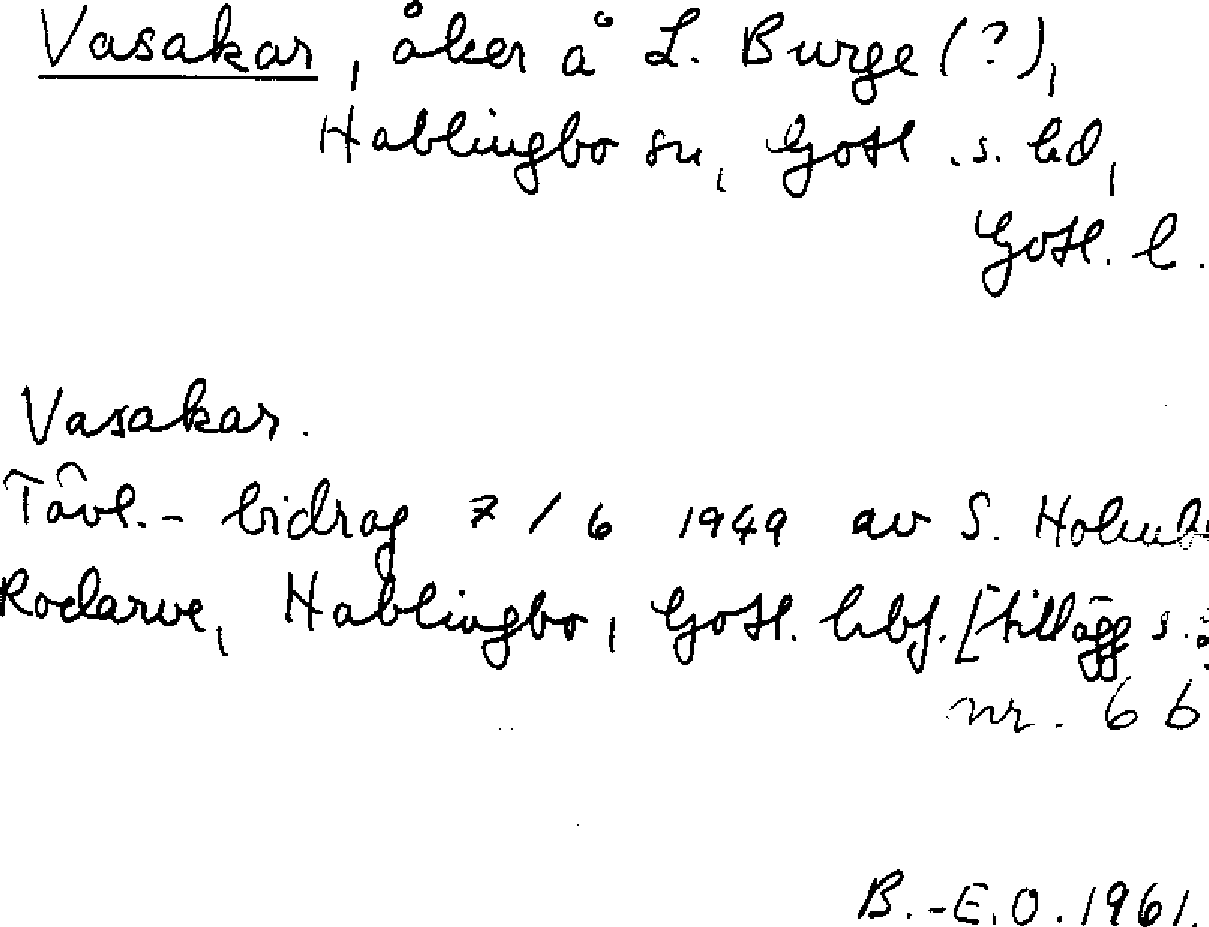 Vasakar, åker å L. Burge (?),
Hablingbo sn, Gotl. s. hd,
Gotl. l.
Vasakar.
Tävl.- bidrag 7/6 1949 av S.
Rodarve, Hablingbo, Gotl. hbf. [tillägg s.
nr. 6 b
B.-E.O. 1961.